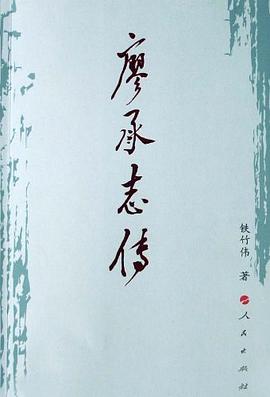 廖承志传
铁竹伟 著
人民出版社